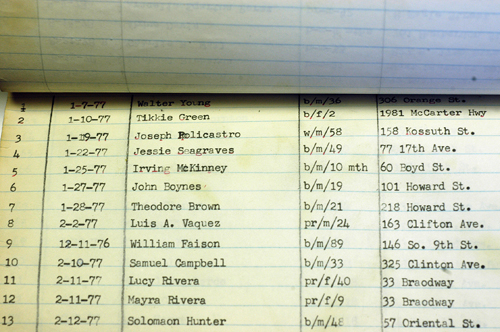 1 1-7-77 Walter Young b/m/36 306 Orange St.
2 1-10-77 Tikkie Green b/f/2 1981 McCarter Hwy
3 1-19-77 Joseph Policastro w/m/58 158 Kossuth St.
4 1-22-77 Jessie Seagraves b/m/49 77 17th Ave.
5 1-25-77 Irving McKinney b/m/10 mth 60 Boyd St.
6 1-27-77 John Boynes b/m/19 101 Howard St.
7 1-28-77 Theodore Brown b/m/21 218 Howard St.
8 2-2-77 Luis A. Vaquez pr/m/24 163 Clifton Ave.
9 12-11-76 William Faison b/m/89 146 So. 9th St.
10 2-10-77 Samuel Campbell b/m/33 325 Clinton Ave.
11 2-11-77 Lucy Rivera pr/f/40 33 Braodway
12 2-11-77 Mayra Rivera pr/f/9 33 Braodway
13 2-12-77 Solomaon Hunter b/m/48 57 Oriental St.